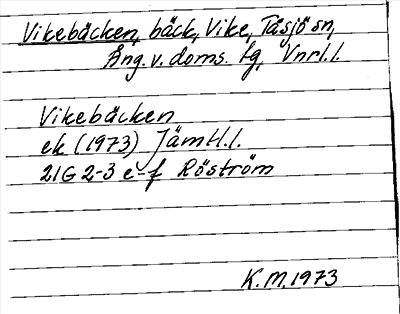 Vikebäcken, bäck, Vike, Tåsjö sn,
Ång. v. doms. fg, Vnrl. l.
Vikebäcken
ek (1973) Jämtl. l.
21G 2-3 e-f Röström
K. M. 1973